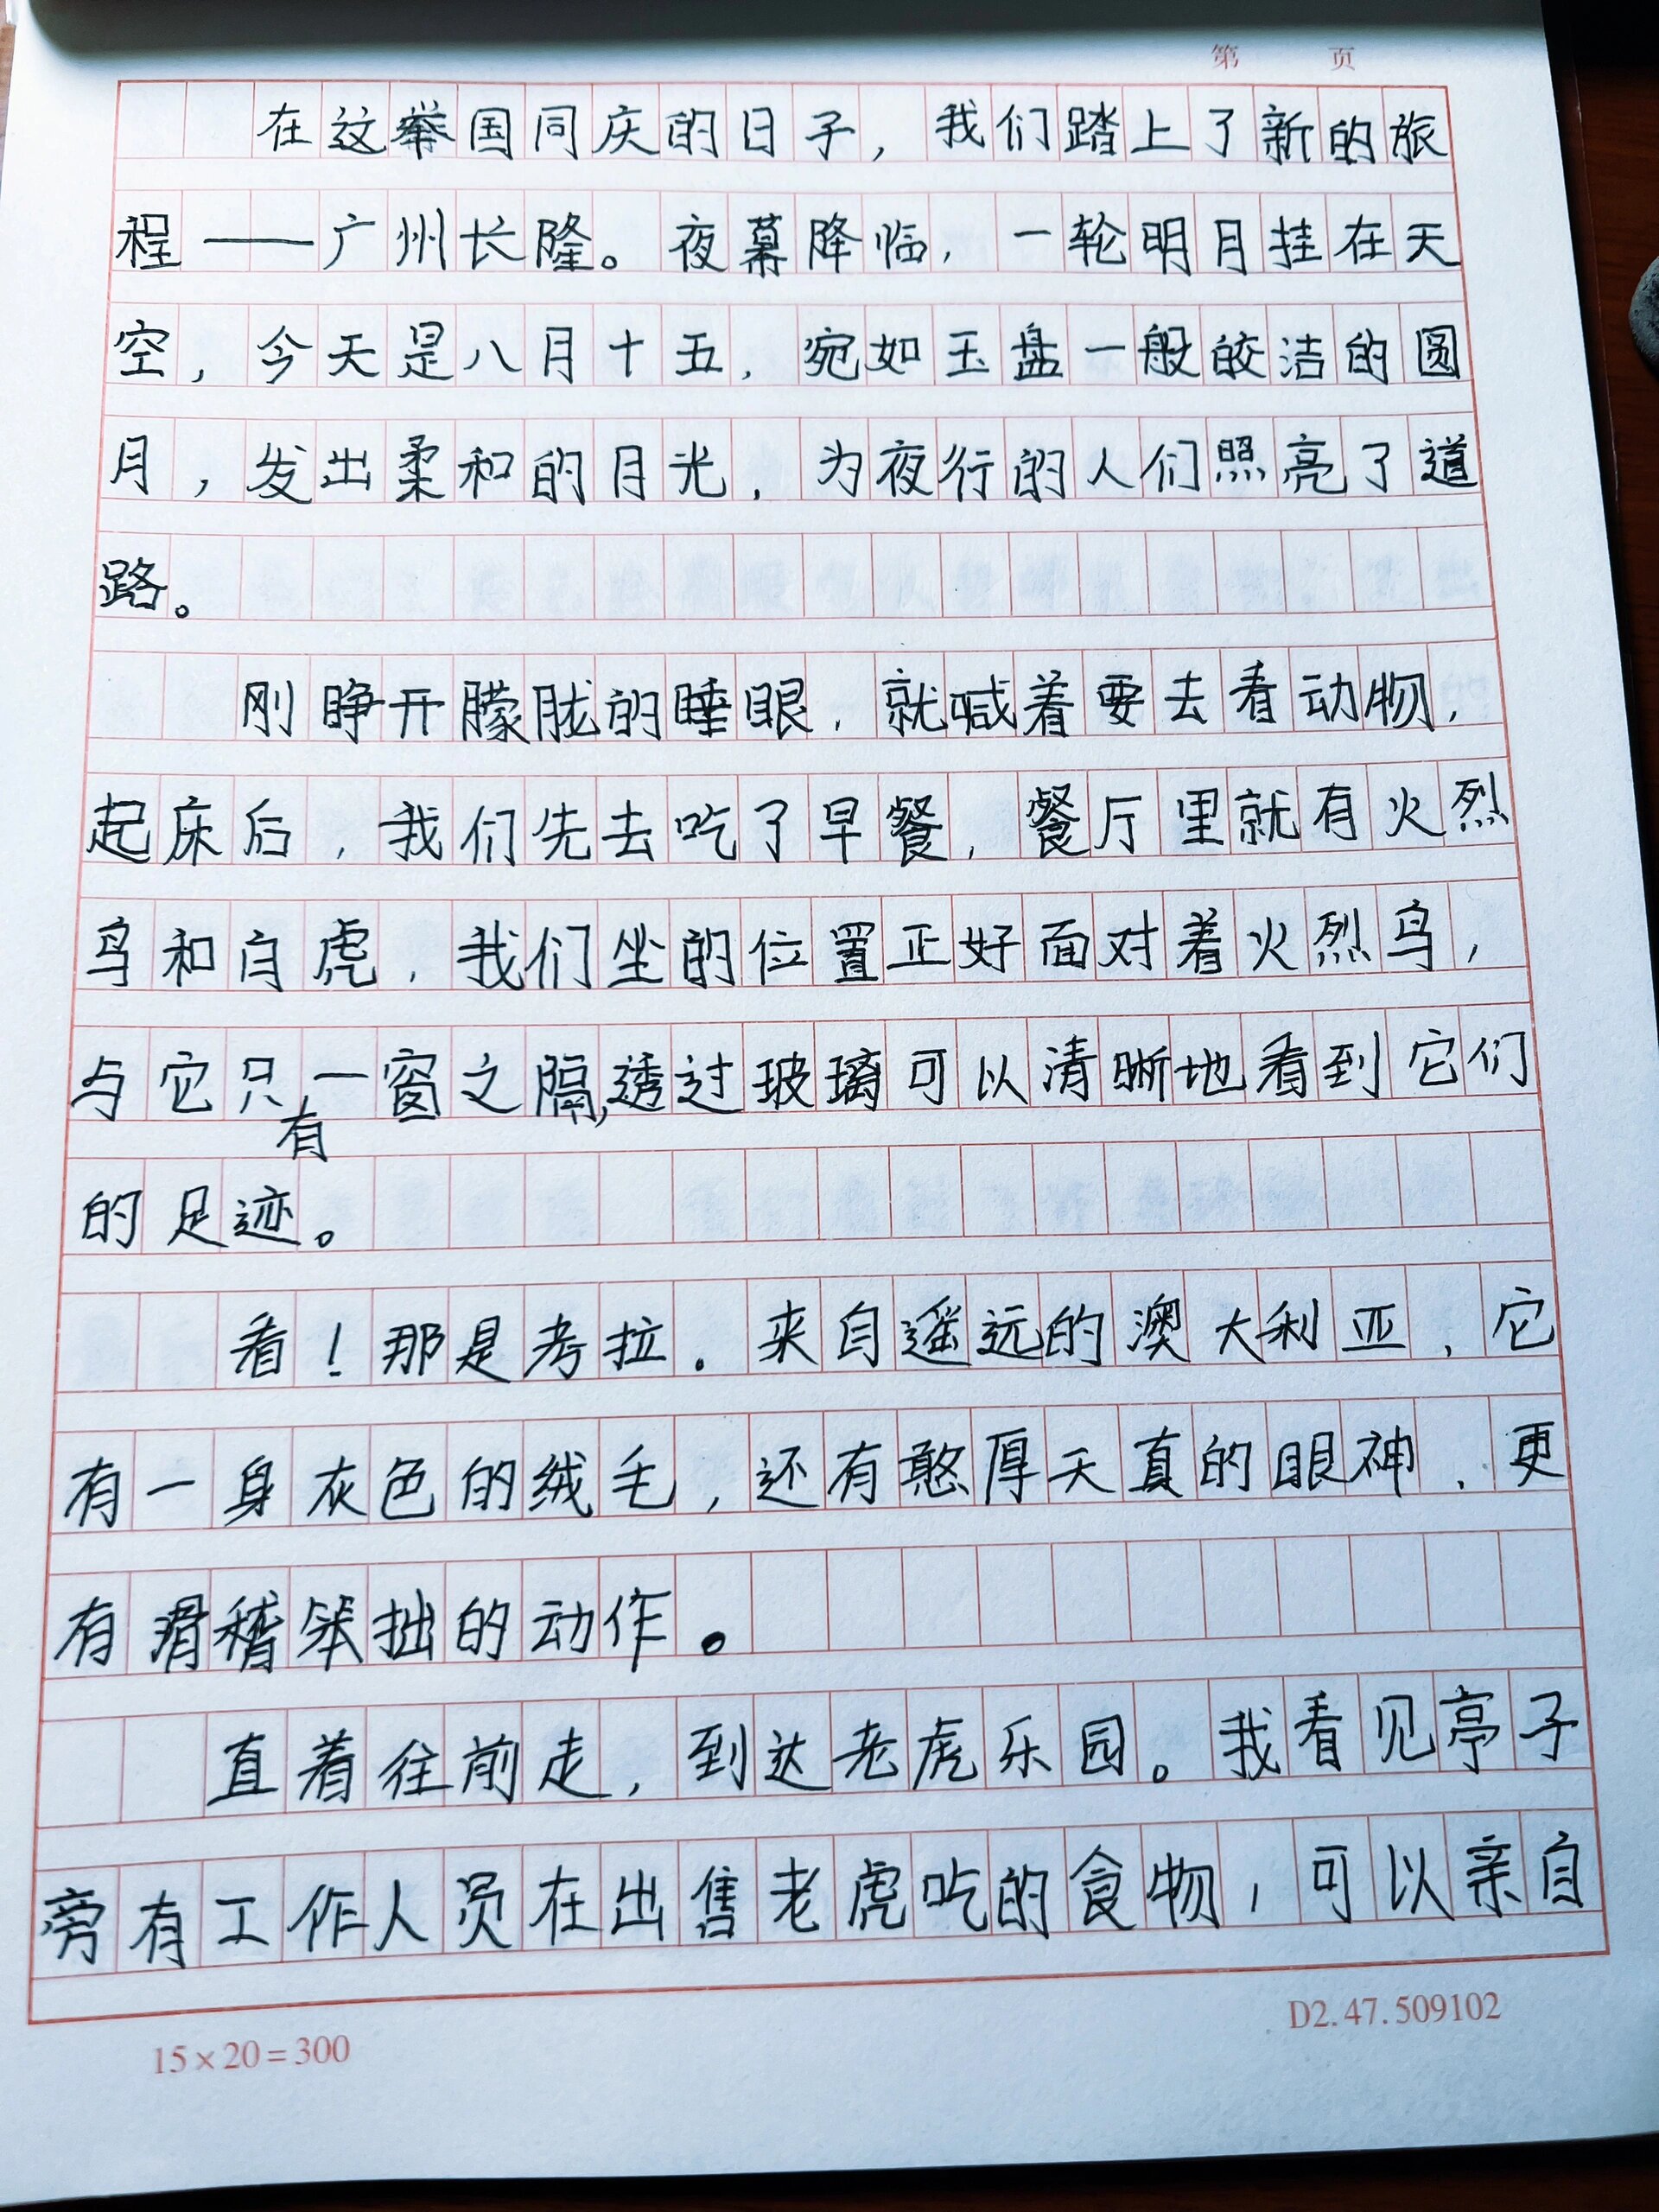 第 页
在这举国同庆的日子，我们踏上了新的旅
程——广州长隆。夜幕降临，一轮明月挂在天
空，今天是八月十五，宛如玉盘一般皎洁的圆
月，发出柔和的月光，为夜行的人们照亮了道
路。
刚睁开朦胧的睡眼，就喊着要去看动物，
起床后，我们先去吃了早餐，餐厅里就有火烈
鸟和白虎，我们坐的位置正好面对着火烈鸟，
与它只有一窗之隔，透过玻璃可以清晰地看到它们
的足迹。
看！那是考拉。来自遥远的澳大利亚，它
有一身灰色的绒毛，还有憨厚天真的眼神，更
有滑稽笨拙的动作。
直着往前走，到达老虎乐园。我看见亭子
旁有工作人员在出售老虎吃的食物，可以亲自
15×20=300
D2.47.509102